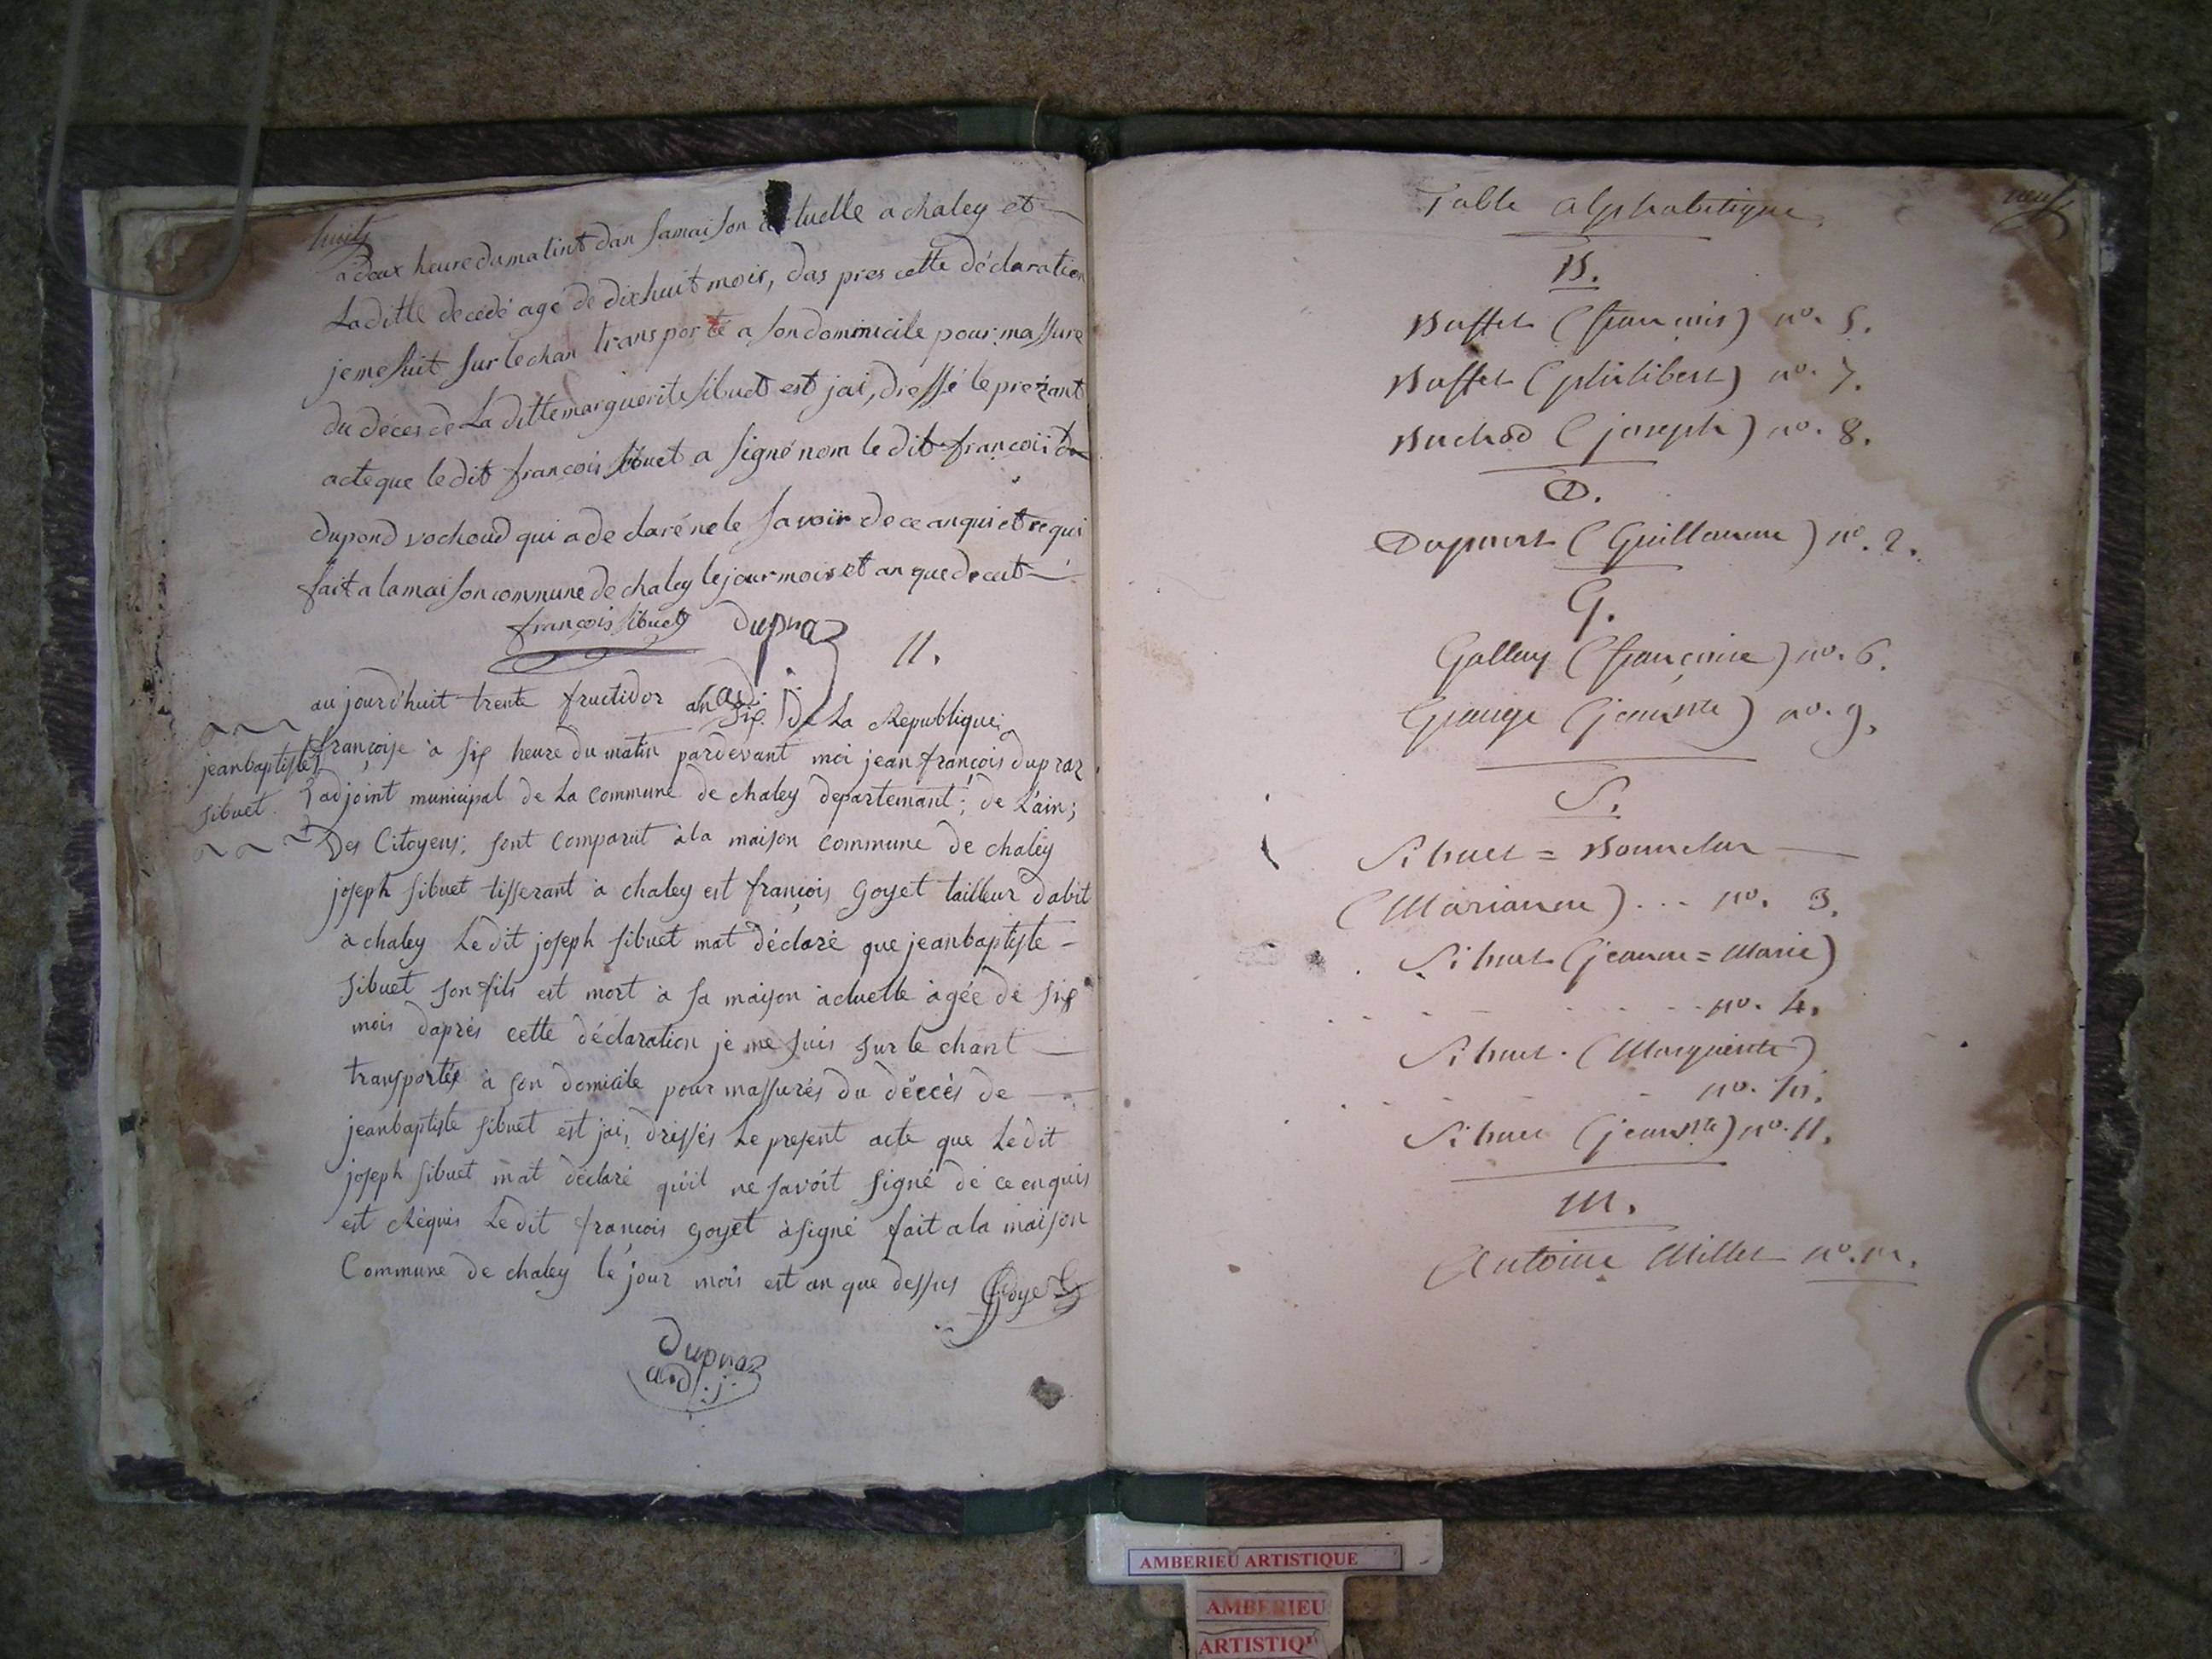 huits
a deux heure du matint dan samaison actuelle a chaley et
La ditte décédé agé de dix huit mois, das pres cette déclaration
je me suit sur le chan transporté a son dominicile pour massure
du déces de La ditte marguerite sibuet est jai, dressé le prezant
acte que le dit françois sibuet a signé nom le dit françois du
dupond vochoud qui a de claré ne le savoir de ce anqui et requi
fait a la maison commune de chaley le jour mois et an que decut
françois sibuet Dupraz
adj.
11.
au jourd'huit trente fructidor an six De La Republique
françoise à six heure du matin pardevant moi jean françois dupraz
jeanbaptiste
sibuet
adjoint municipal de La commune de chaley departemant; de L'ain;
Des Citoyens; sont comparut à la maison commune de chaley
joseph sibuet tisserant à chaley est françois Goyet tailleur dabit
à chaley Le dit joseph sibuet mat déclaré que jeanbaptiste -
sibuet son fils est mort à sa maison actuelle agée de six
mois daprés cette déclaration je me suis sur le chant
transportés à son domicile pour massurés du déccès de
jeanbaptiste sibuet est jai, dressés Le present acte que Le dit
joseph sibuet mat déclaré qu'il ne savoit signé de ce enquis
est Réquis Le dit françois goyet à signé fait a la maison
Commune de chaley le jour mois est an que dessus Goyet
Dupraz
adj.
neuf
Table alphabetique
B.
Buffet (françois) no. 5.
Buffet (philibert) no. 7.
Buchod (joseph) no. 8.
D.
Dupont (Guillaume) no. 2.
G.
Gallay (françoise) no. 6.
Grange (jean Bte) no. 9.
S.
Sibuet =
(Marianne) ... no. 3.
Sibuet (jeanne = Marie)
no. 4.
Sibuet. (Marguerite)
no. 10.
Sibuet (jean Bte) no. 11.
M.
Antoine Millet no. 1.
AMBERIEU ARTISTIQUE
AMBERIEU
ARTISTIQU